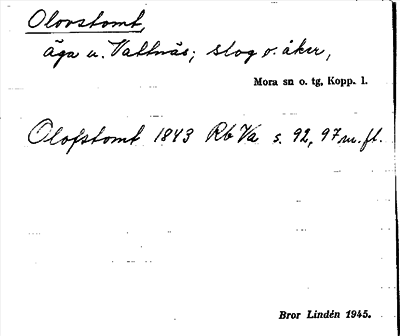 Olovstomt,
äga u. Vattnäs; slog o. åker,
Mora sn o. tg, Kopp. l.
Olofstomt 1843 Rb Va s. 92, 97 m. fl.
Bror Lindén 1945.